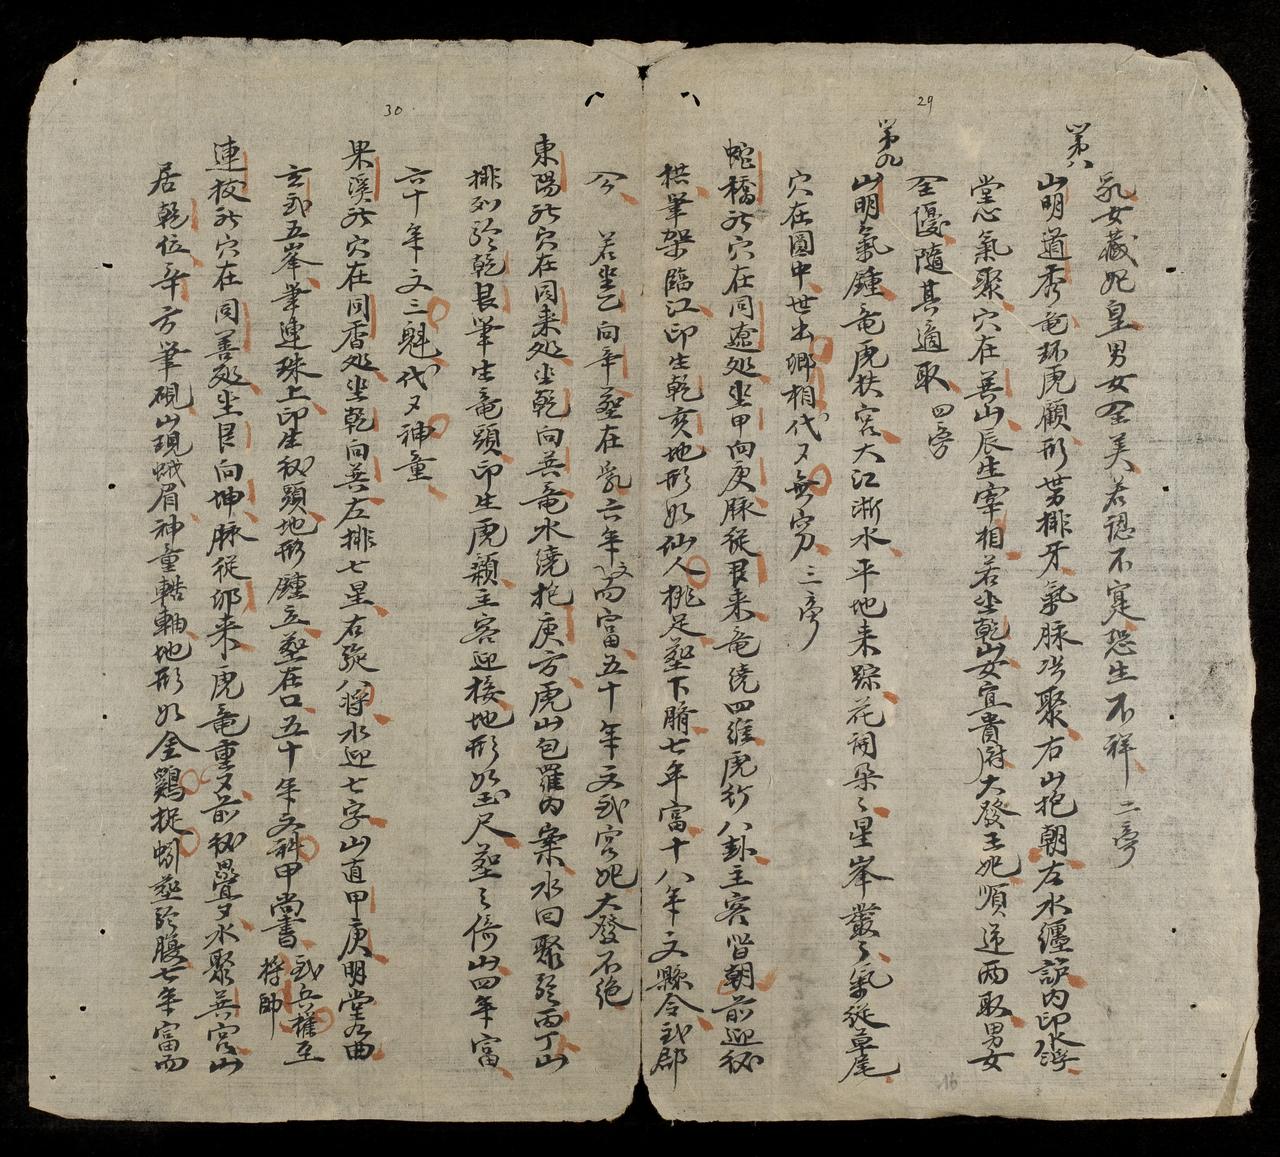 29
乳女藏妃皇男女全美若認不寔恐生不祥 二旁
第八
山明道秀竜环虎顧形势排牙氣脉洪聚右山抱朝左水纏護内印水浮
堂心氣聚穴在善山辰生宰相若坐乾山女宜貴府大發王妃順逆两取男女
全優隨其適取 四旁
第九
山明氣鍾竜虎扶容大江淅水平地来踪花開朵々星峯叢々氣從草尾
穴在圓中世出卿相代々無穷 三旁
蛇橋 穴在同遼処坐甲向庚脉從艮来竜繞四維虎行八卦主客皆朝前迎
拱筆架臨江印生乾亥地形如仙人桃足塟下腈七年富十八年文縣令武郡
今 若坐乙向辛塟在乳六年 富五十年文武宫妃大發不絶
東陽 穴在同来処坐乾向巽竜水繞抱庚方虎山包羅内案水回聚於丙丁山
排列於乾艮筆生竜頭印生虎顙主客迎接地形如玉尺塟之倚山四年富
六十年文三魁代々神童
30
果溪 穴在同香処坐乾向巽左排七星右 八將水迎七字山直甲庚明堂九曲
玄武五峯筆連珠上印生 頭地形鍾立塟在口五十年文科甲尚書 武兵權至將帥
連 穴在同善処坐艮向坤脉從卯来虎竜重々前 疊々水聚巽宫山
居乾位辛方筆硯山現蛾眉神童 軸地形如金鷄捉 塟於腹七年富而
16